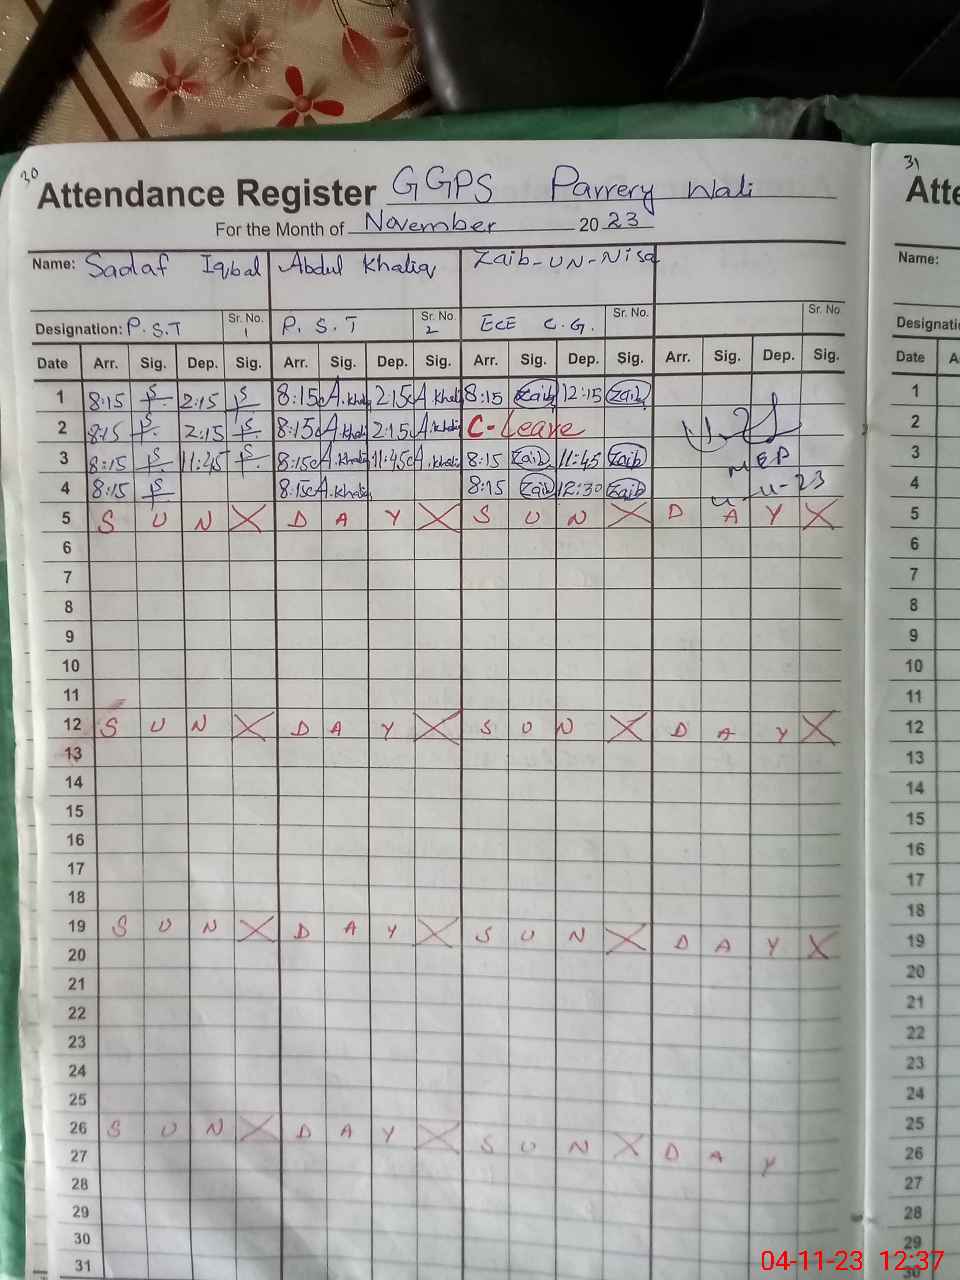 30
Attendance Register GGPS Parrery Wali
For the Month of November 20 23
Name: Sadaf Iqbal Abdul Khaliq Zaib-UN-Nisa
Designation: P.S.T Sr. No. 1 P.S.T Sr. No. 2 ECE C.G. Sr. No. Sr. No.
Date Arr. Sig. Dep. Sig. Arr. Sig. Dep. Sig. Arr. Sig. Dep. Sig. Arr. Sig. Dep. Sig.
1 8:15 2:15 8:15 A.Khaliq 2:15 A.Khaliq 8:15 Zaib 12:15 Zaib
2 8:15 2:15 8:15 A.Khaliq 2:15 A.Khaliq C-Leave
3 8:15 11:45 8:15 A.Khaliq 11:45 A.Khaliq 8:15 Zaib 11:45 Zaib
4 8:15 8:15 A.Khaliq 8:15 Zaib 12:30 Zaib
5 S U N X D A Y X S U N X D A Y X
6
7
8
9
10
11
12 S U N X D A Y X S U N X D A Y X
13
14
15
16
17
18
19 S U N X D A Y X S U N X D A Y X
20
21
22
23
24
25
26 S U N X D A Y X S U N X D A Y
27
28
29
30
31
31
Atte
Name:
Designati
Date A
1
2
3
4
5
6
7
8
9
10
11
12
13
14
15
16
17
18
19
20
21
22
23
24
25
26
27
28
29
30
04-11-23 12:37